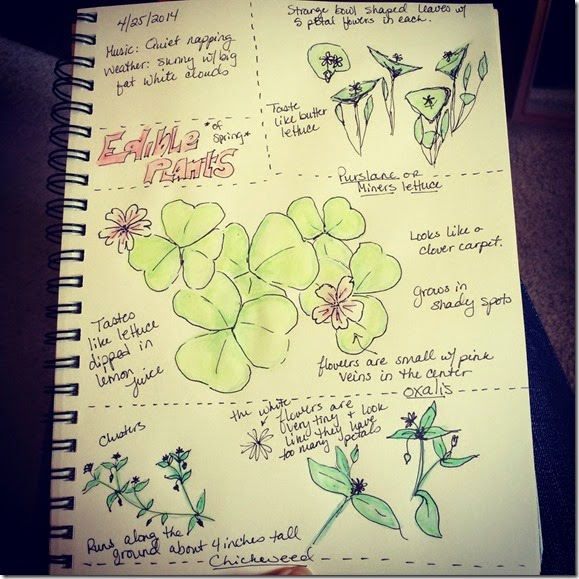 4/25/2014
Music: Quiet napping
Weather: sunny w/ big
fat white clouds
Edible
*of
spring*
Plants
Strange bowl shaped leaves w/
5 petal flowers in each.
Taste
like butter
lettuce
Purslane or
Miners lettuce
Looks like a
clover carpet.
Grows in
shady spots
Tastes
like lettuce
dipped in
lemon
juice
flowers are small w/ pink
veins in the center
oxalis
Clusters
the white
flowers are
very tiny + look
like they have
too many petals
Runs along the
ground about 4 inches tall
Chickweed